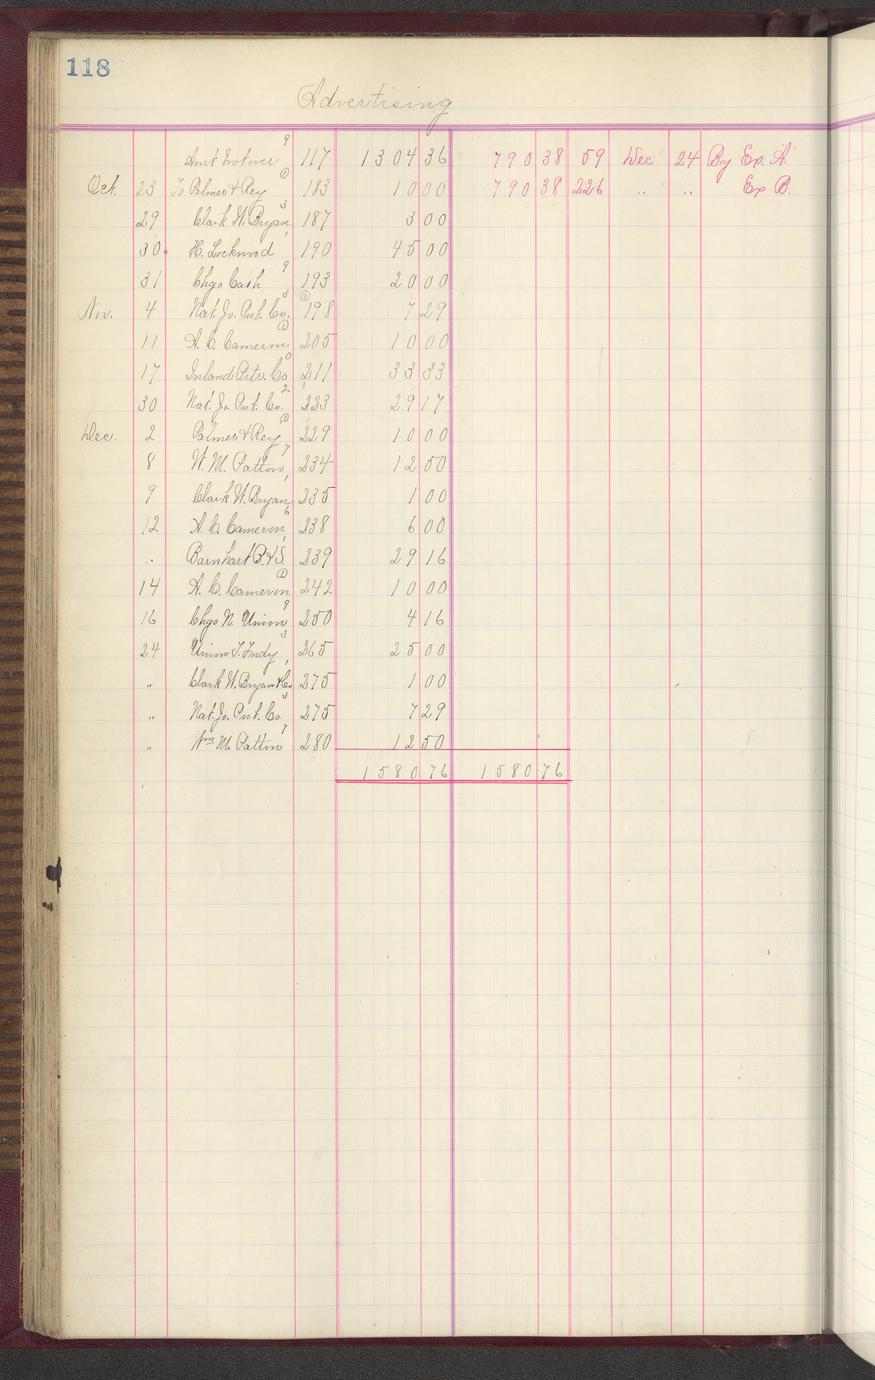 118
Advertising
Am't brot over 9 117 1304 36 790 38 59 Dec 24 By Ex. A
Oct. 23 To Palmer & Rey 183 10 00 790 38 226 .. .. Ex B.
29 Clark W. Bryan 3 187 3 00
30 H. Lockwood 190 45 00
31 Chgo Cash 9 193 20 00
Nov. 4 Nat. Jo. Prt. Co. 3 198 7 29
11 A. C. Cameron 205 10 00
17 Inland Prtr. Co 211 33 33
30 Nat. Jo. Prt. Co. 2 223 29 17
Dec. 2 Palmer & Rey 229 10 00
8 W. M. Patton 7 234 12 50
9 Clark W. Bryan 235 1 00
12 A. C. Cameron 6 238 6 00
.. Barnhart B. & S. 239 29 16
14 A. C. Cameron 242 10 00
16 Chgo N. Union 9 250 4 16
24 Union T. Fndy 3 265 25 00
„ Clark W. Bryan & Co 275 1 00
„ Nat. Jo. Prt. Co. 3 275 7 29
„ Wm M. Patton 7 280 12 50
1580 76 1580 76